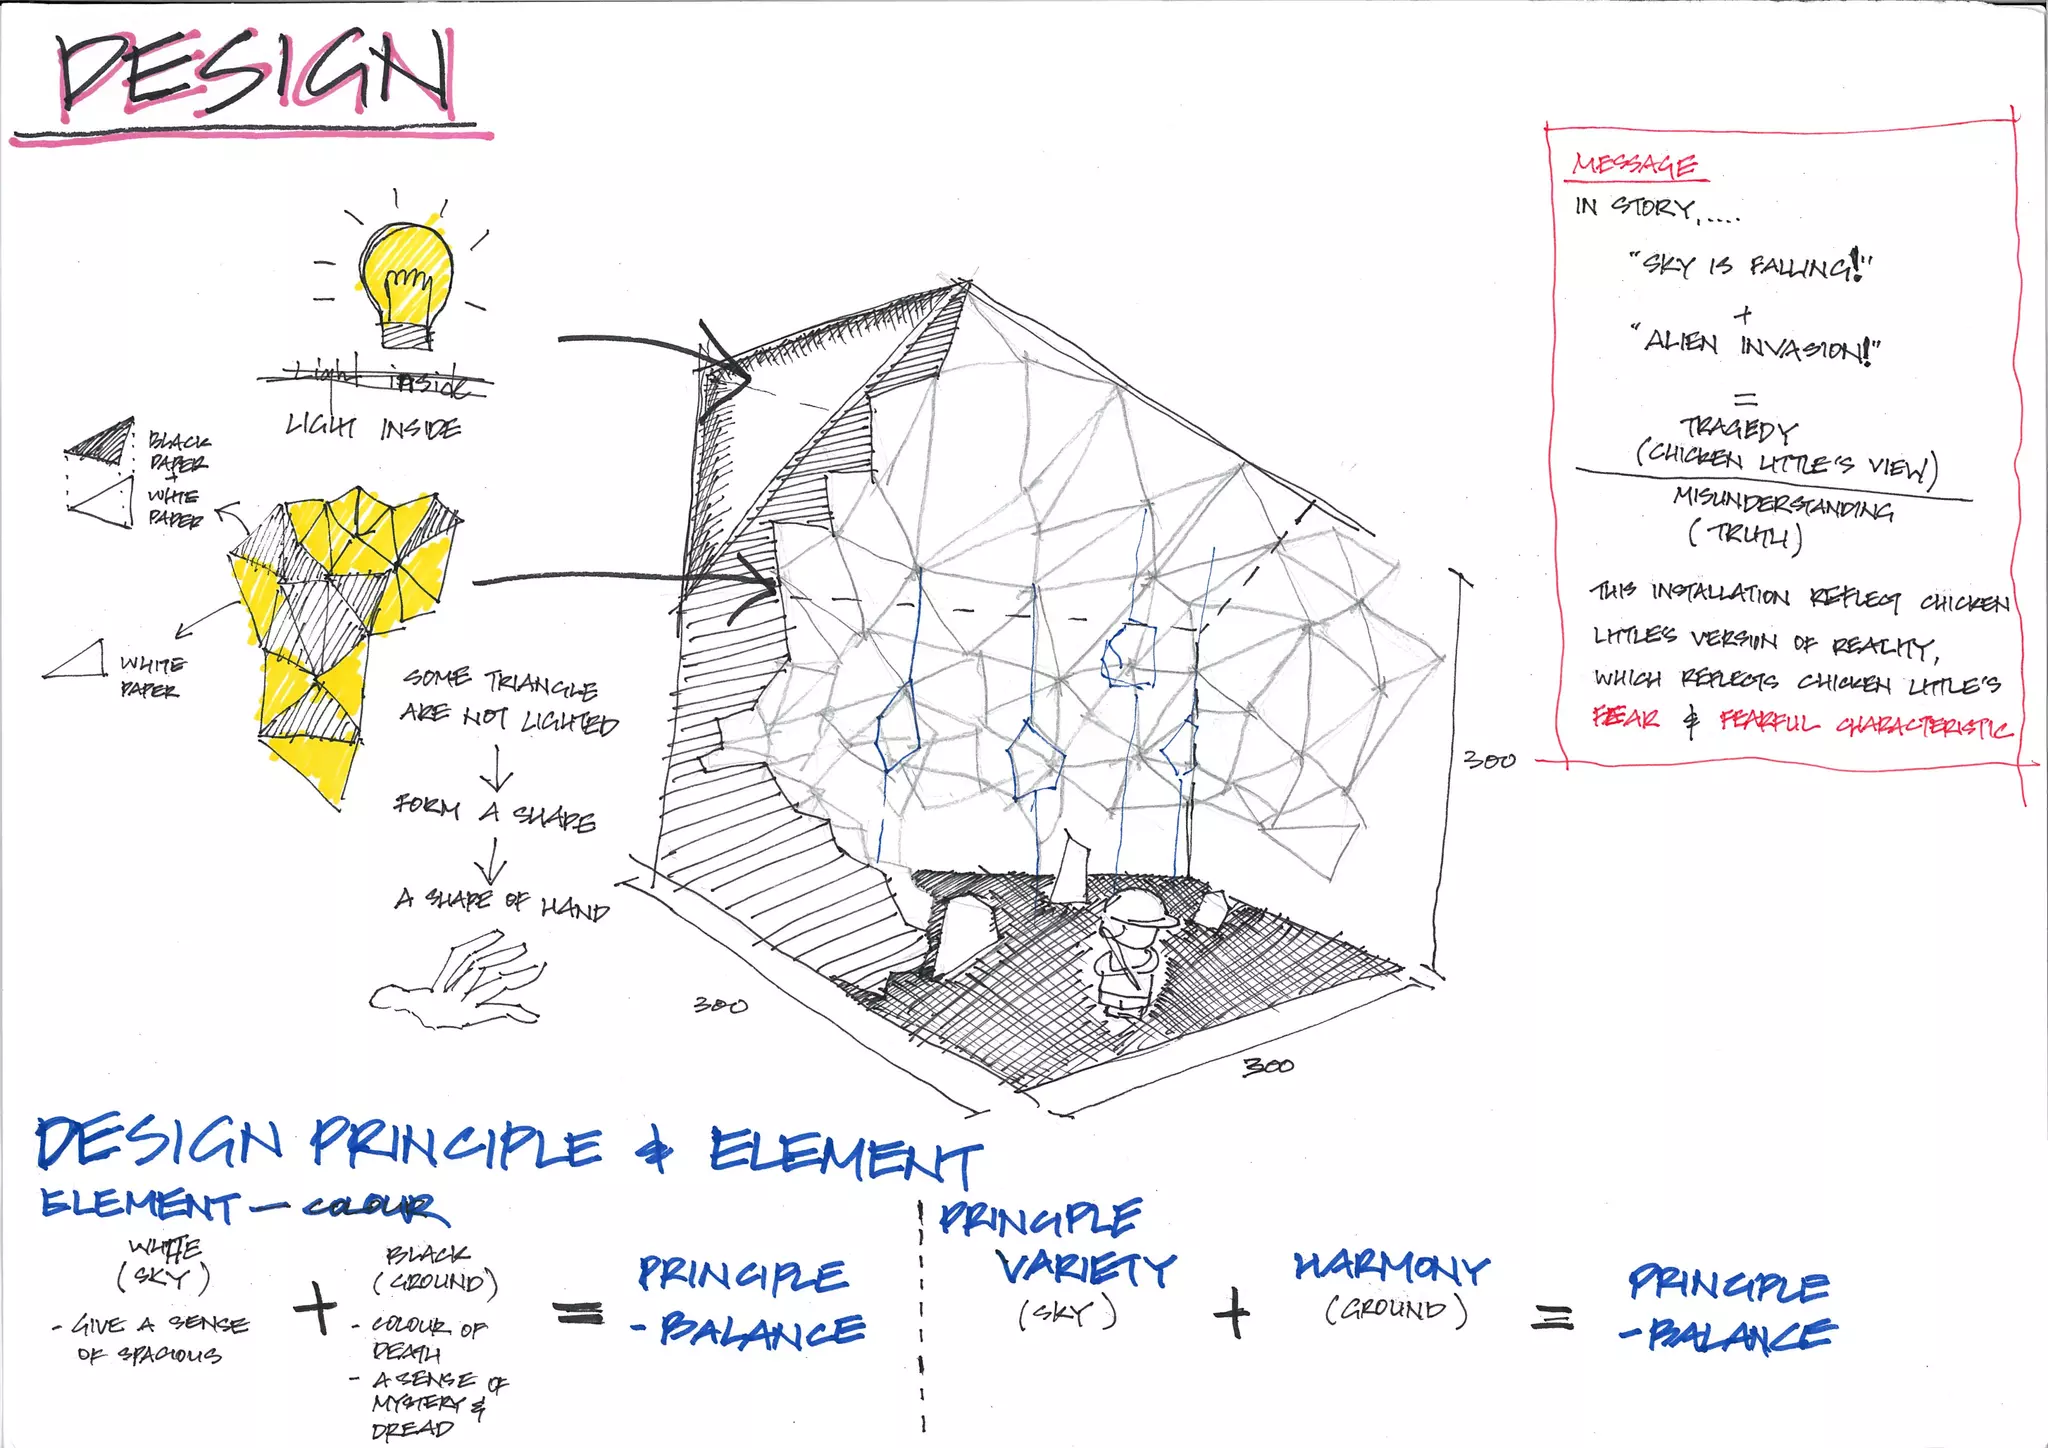 DESIGN
Light inside
LIGHT INSIDE
BLACK
PAPER
+
WHITE
PAPER
WHITE
PAPER
SOME TRIANGLE
ARE NOT LIGHTED
FORM A SHAPE
A SHAPE OF HAND
300
300
300
MESSAGE
IN STORY,....
"SKY IS FALLING!"
+
"ALIEN INVASION!"
=
TRAGEDY
(CHICKEN LITTLE'S VIEW)
MISUNDERSTANDING
(TRUTH)
THIS INSTALLATION REFLECT CHICKEN
LITTLE'S VERSION OF REALITY,
WHICH REFLECTS CHICKEN LITTLE'S
FEAR & FEARFUL CHARACTERISTIC
DESIGN PRINCIPLE & ELEMENT
ELEMENT - COLOUR
WHITE
(SKY)
- GIVE A SENSE
OF SPACIOUS
+
BLACK
(GROUND)
- COLOUR OF
DEATH
- A SENSE OF
MYSTERY &
DREAD
=
PRINCIPLE
- BALANCE
PRINCIPLE
VARIETY
(SKY)
+
HARMONY
(GROUND)
=
PRINCIPLE
- BALANCE